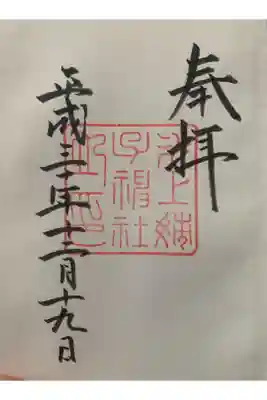 奉拝
氷上姉
子神社
之印
平成三十年十二月十九日